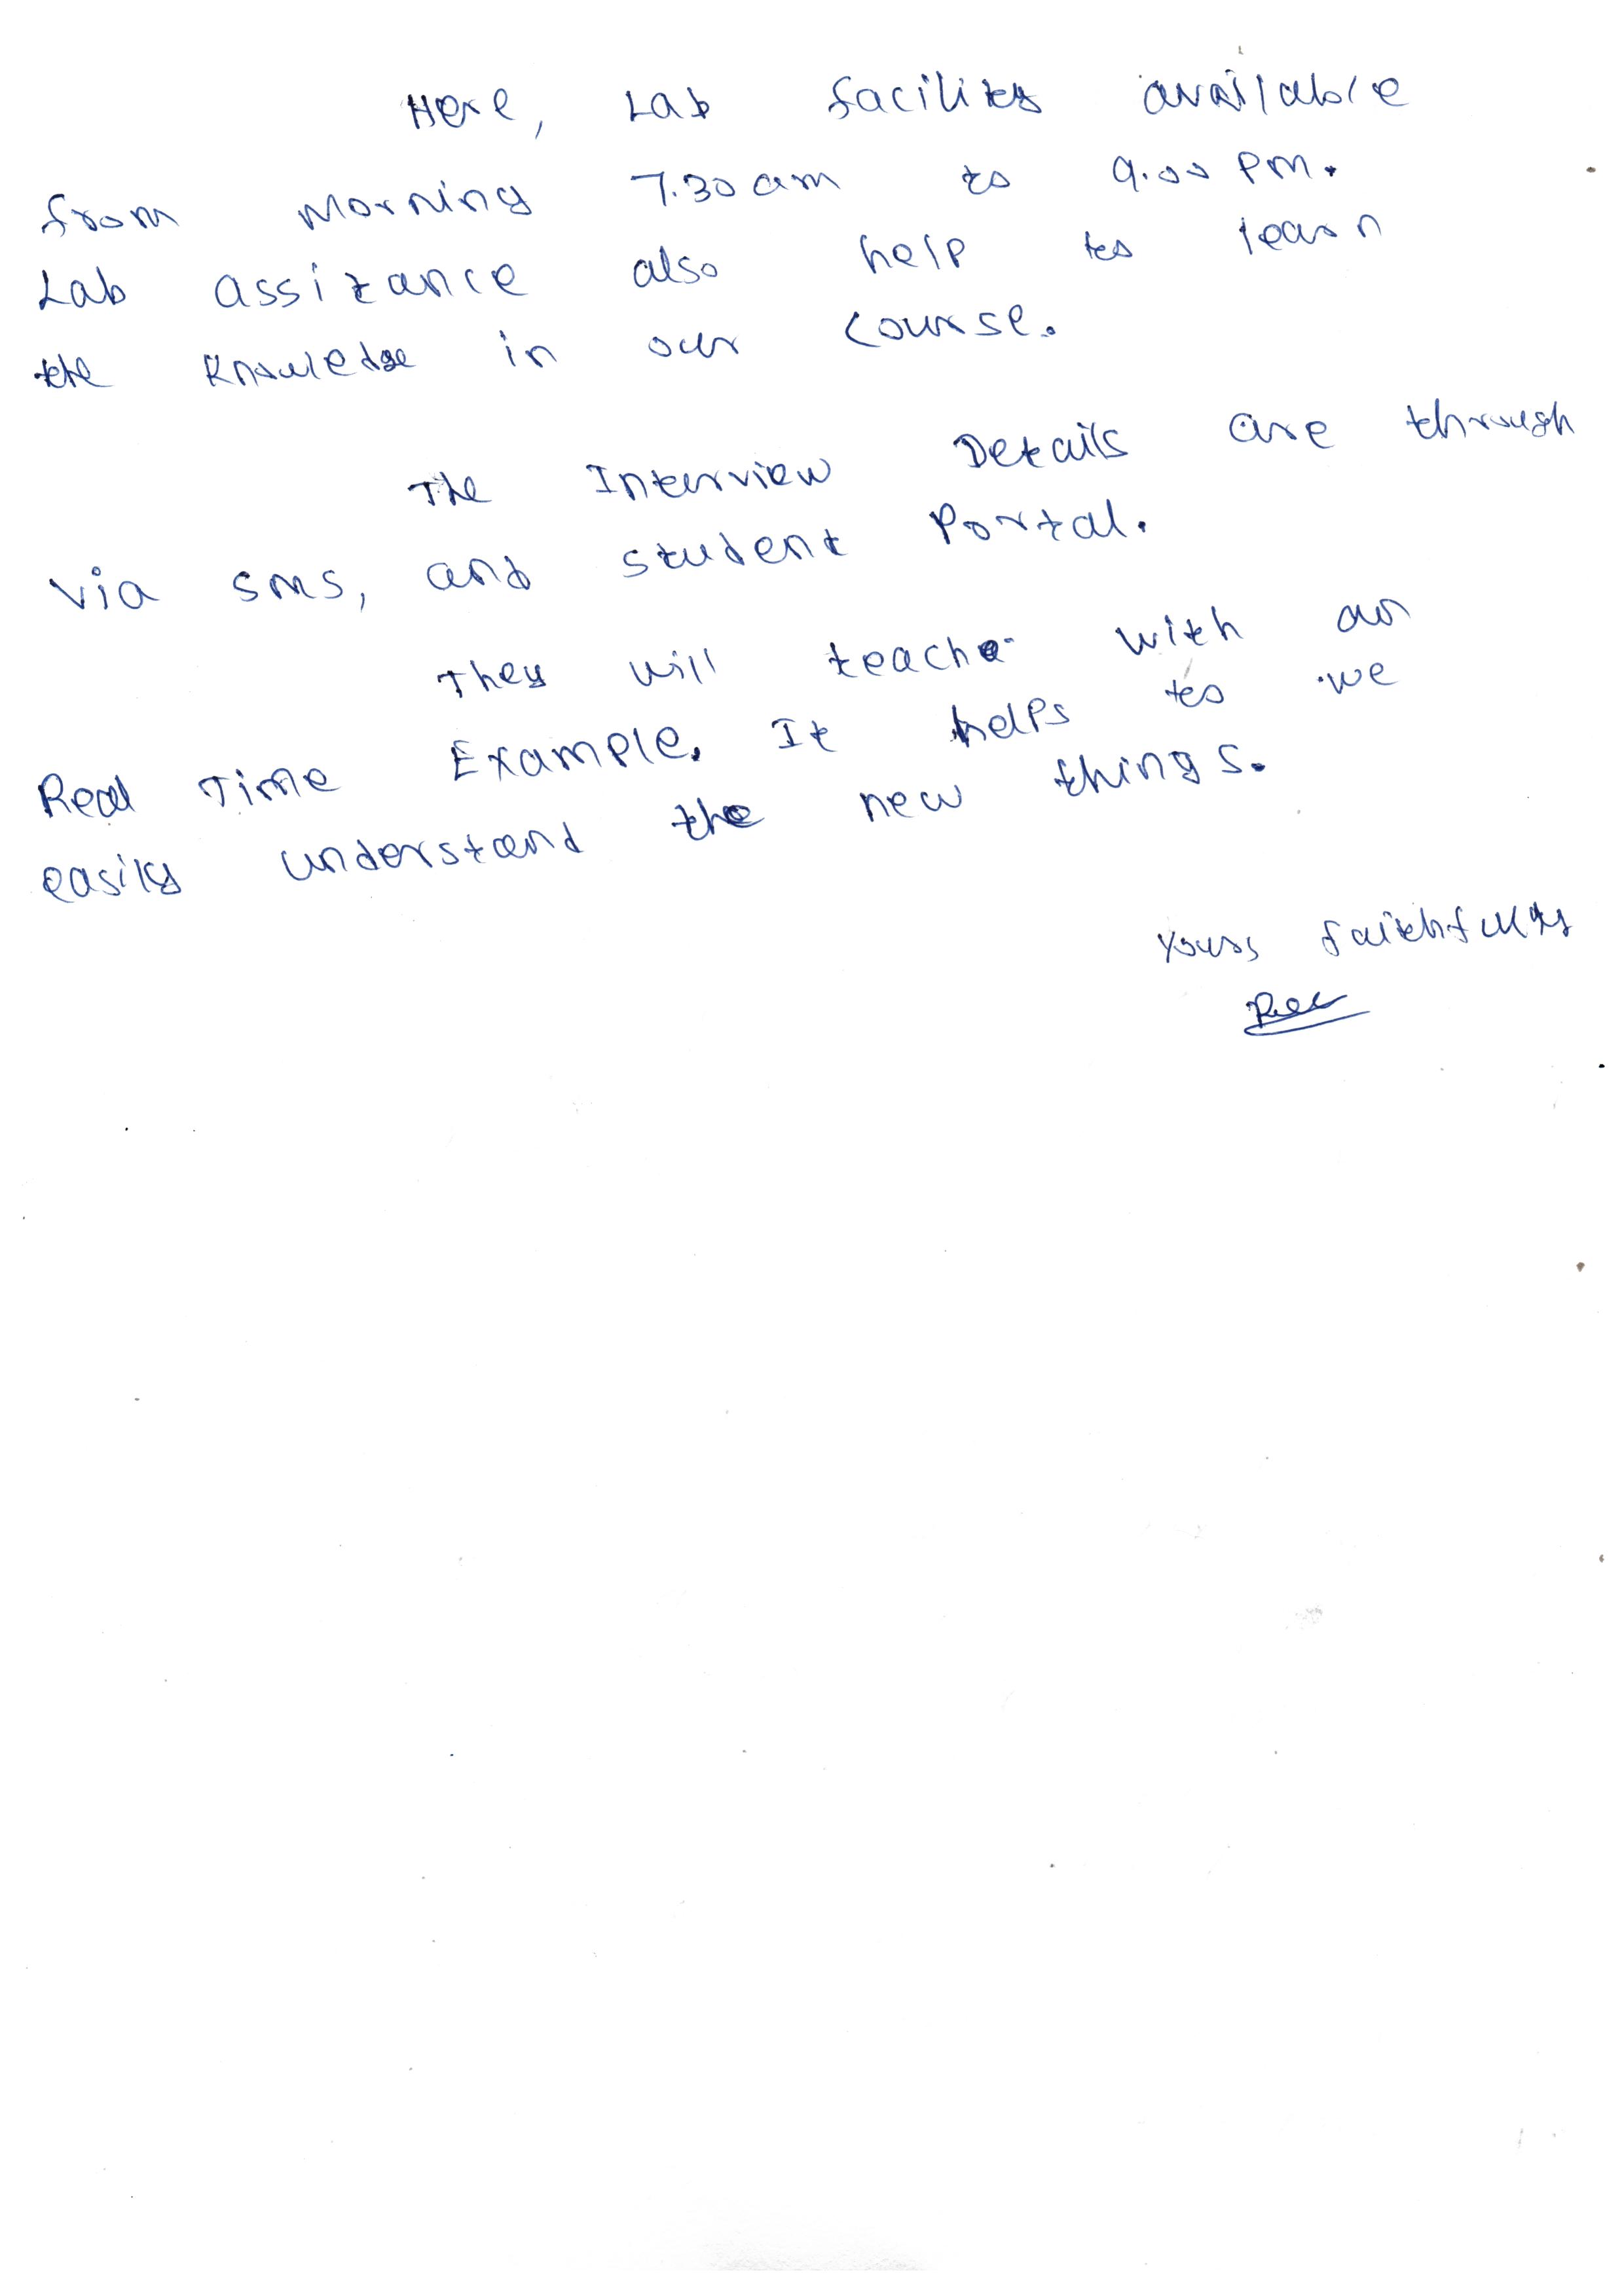 Here, Lab facility available
from Morning 7.30 am to 9.00 PM.
Lab assitance also help to learn
the knowledge in our course.
The Interview Details are through
via SMS, and student Portal.
They will teach with an
Real Time Example. It helps to we
easily understand the new things.
Yours faithfully